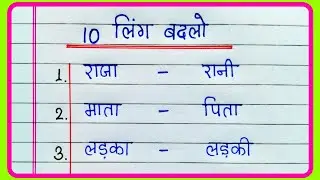 10 लिंग बदलो
1. राजा - रानी
2. माता - पिता
3. लड़का - लड़की